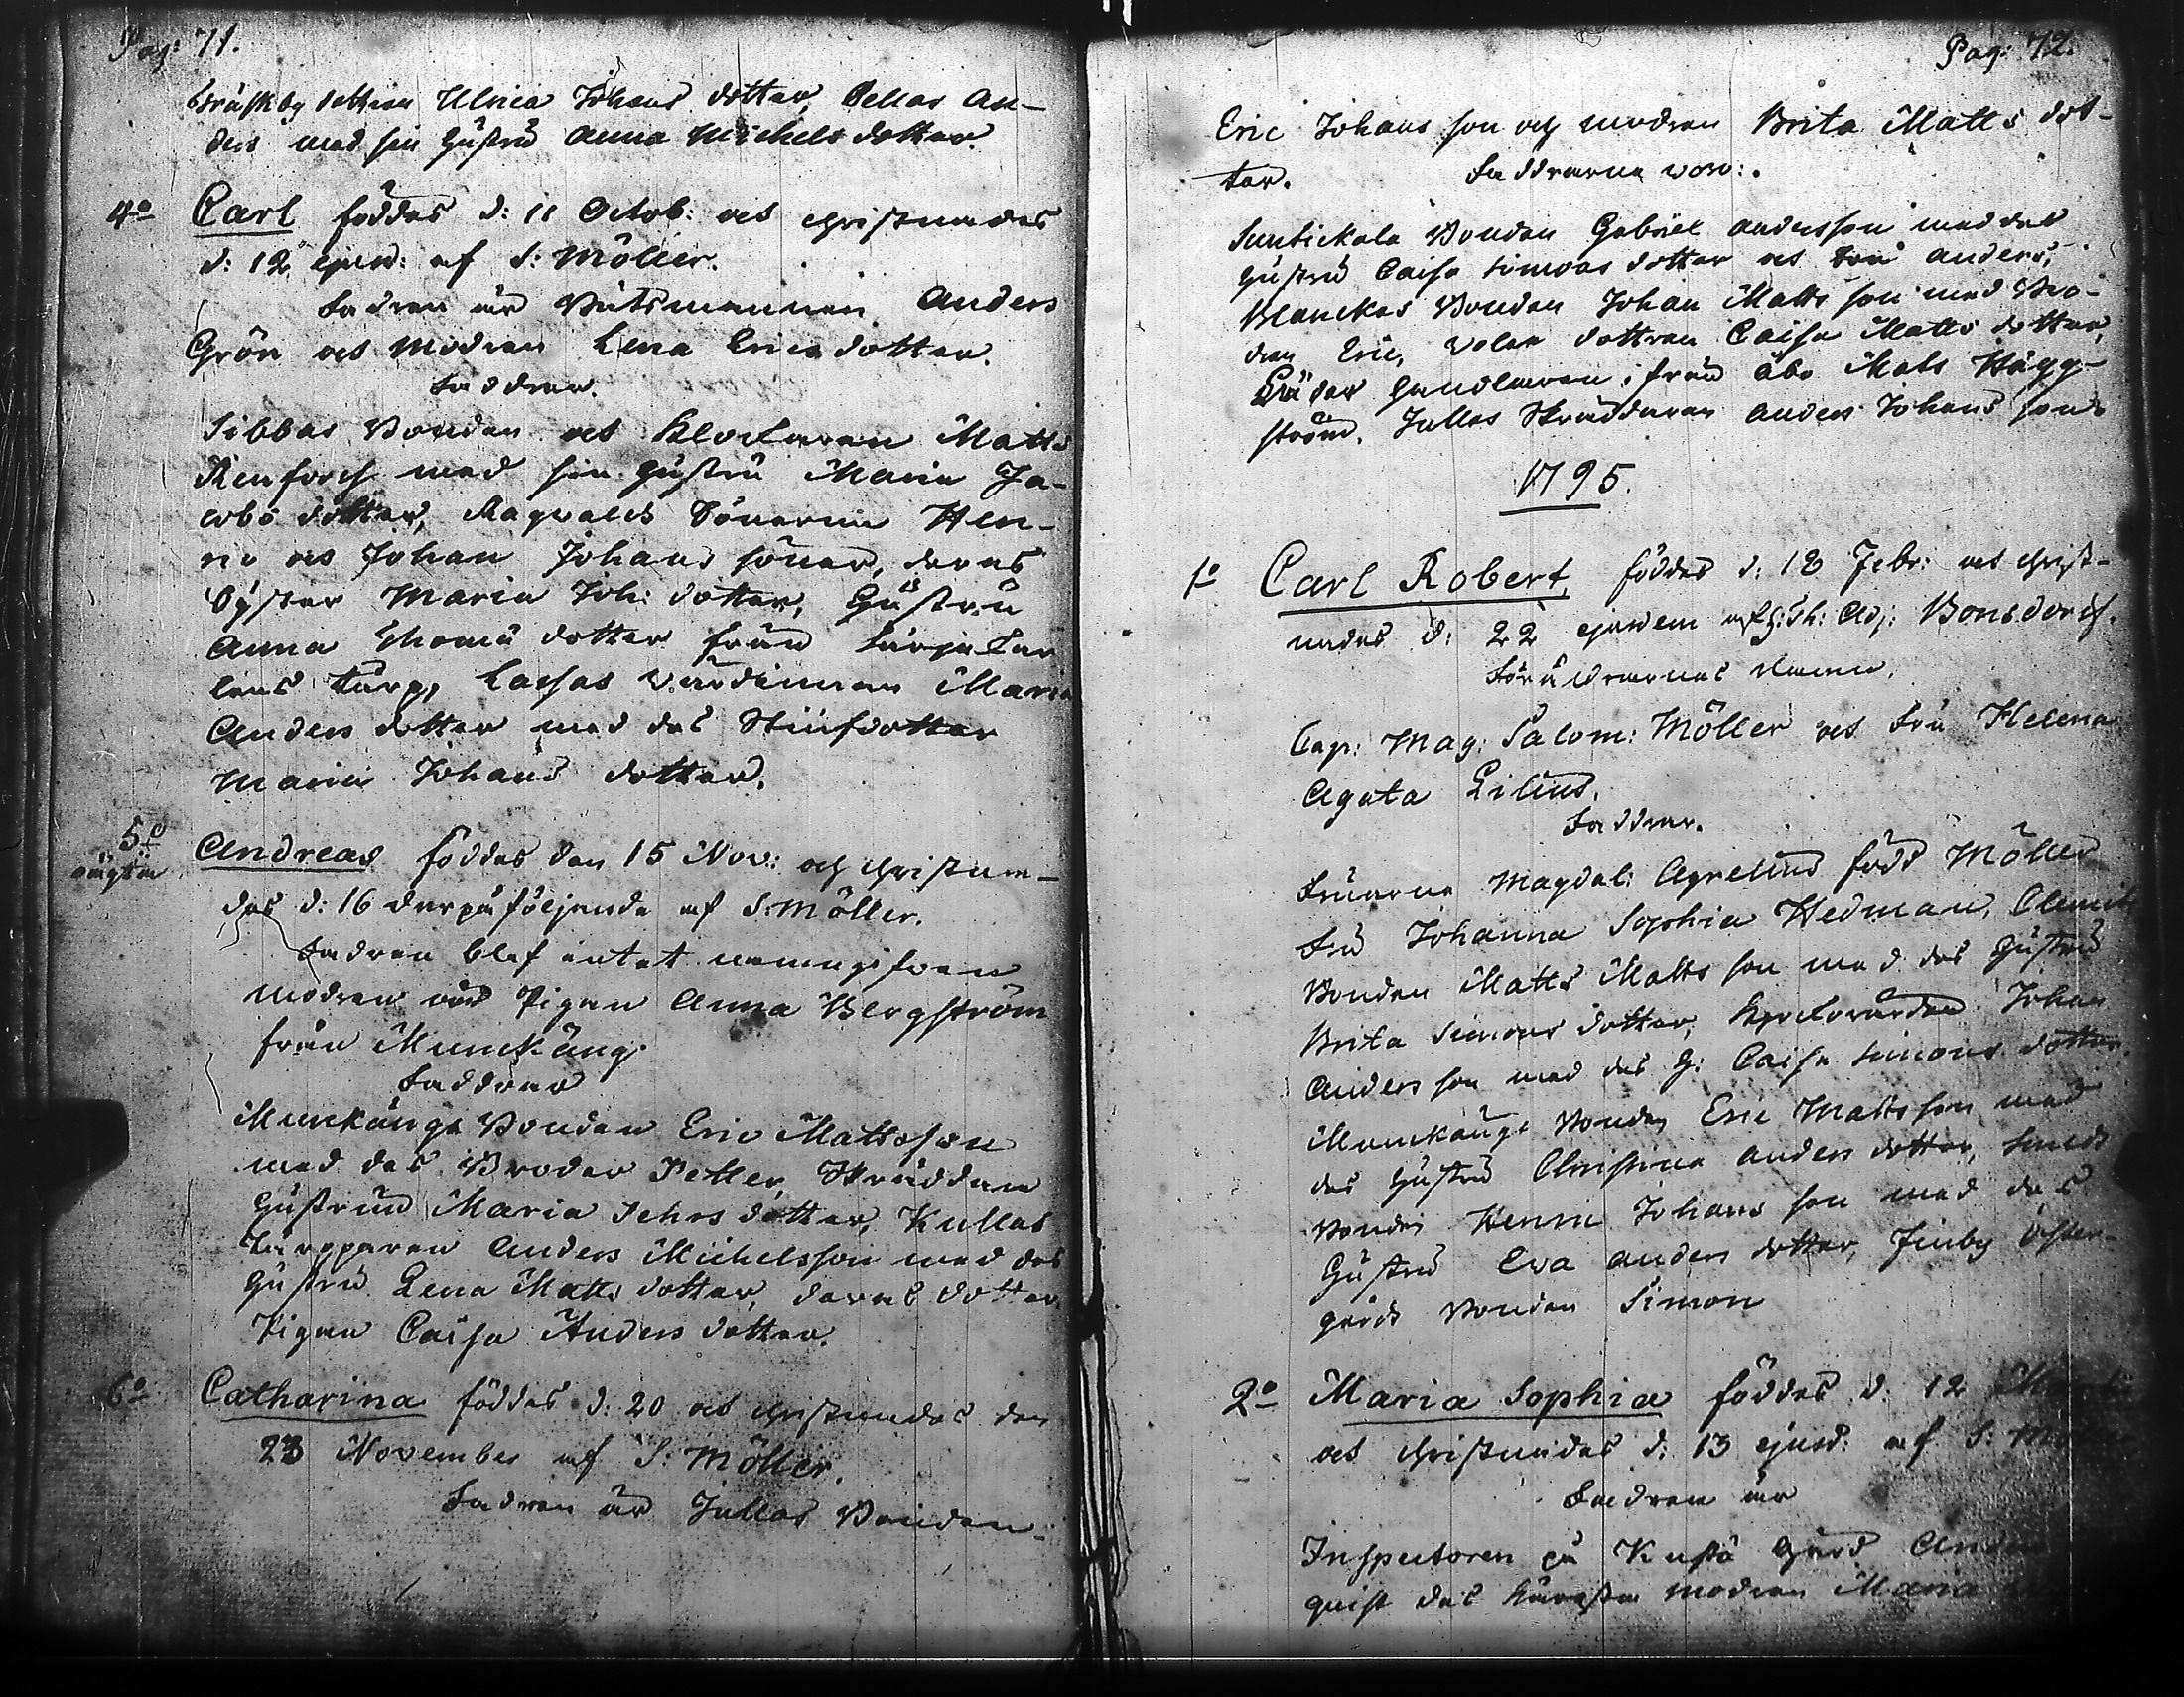 Pag: 71.
Träskby dottren Ulrica Johans dotter, Pellas An-
ders med sin hustru Anna Michels dotter.
4o Carl föddes d: 11 Octob: och christnades
d: 12 ejusd: af S: Möller.
Fadren är Båtsmannen Anders
Grön och Modren Lena Erics dotter.
Faddrar.
Sibbas Bonden och Klockaren Matts
Renfors med sin hustru Maria Ja-
cobs dotter, Ragvalds Sönerne Hen-
ric och Johan Johans söner, deras
Syster Maria Joh: dotter, Hustru
Anna Thomæ dotter från
torp, Lassas värdinnan Maria
Anders dotter med des Stiufdotter
Maria Johans dotter.
5o oägta Andreas föddes den 15 Nov: och christna-
des d: 16 derpåföljande af S: Möller.
Fadren blef intet
modren är Pigan Anna Bergström
från Munckäng.
Faddrar
Munckänge Bonden Eric Mattsson
med des Broder Petter, Skräddare
hustrun Maria Pehrs dotter, Kullas
Torpparen Anders Michelsson med des
hustru Lena Matts dotter, deras dotter
Pigan Caisa Anders dotter.
6o Catharina föddes d: 20 och christnades den
23 November af S: Möller.
Fadren är Jullas Bonden
Pag: 72.
Eric Johans son och modren Brita Matts dot-
ter. Faddrarne voro:
Bonden Gabriel Andersson med des
hustru Caisa Simons dotter och Anders,
Blanckas Bonden Johan Matts son med Bro-
dren Eric, dottren Caisa Matts dotter,
handlaren ifrån Åbo Mats Hägg-
ström, Jullas Skräddaren Anders Johans son
1795.
1o Carl Robert, föddes d: 18 Febr: och christ-
nades d: 22 ejusdem af Adj: Bonsdorff.
Föräldrarnes Namn.
Cap: Mag: Salom: Möller och Fru Helena
Agata Lilius.
Faddrar.
Fruarna Magdal: Agrelius född Möller
Fru Johanna Sophia Hedman,
Bonden Matts Matts son med des hustru
Brita Simons dotter, Kyrckovärden Johan
Anders son med des h: Caisa Simons dotter.
Munckänge Bonden Eric Matts son med
des hustru Christina Anders dotter, Smeds
Bonden Henric Johans son med des
hustru Eva Anders dotter, Finby Öster-
gårds Bonden Simon
2o Maria Sophia föddes d: 12
och christnades d: 13 ejusd: af S:
Fadren är
Inspectoren på Kustö Gård
quist des modren Maria